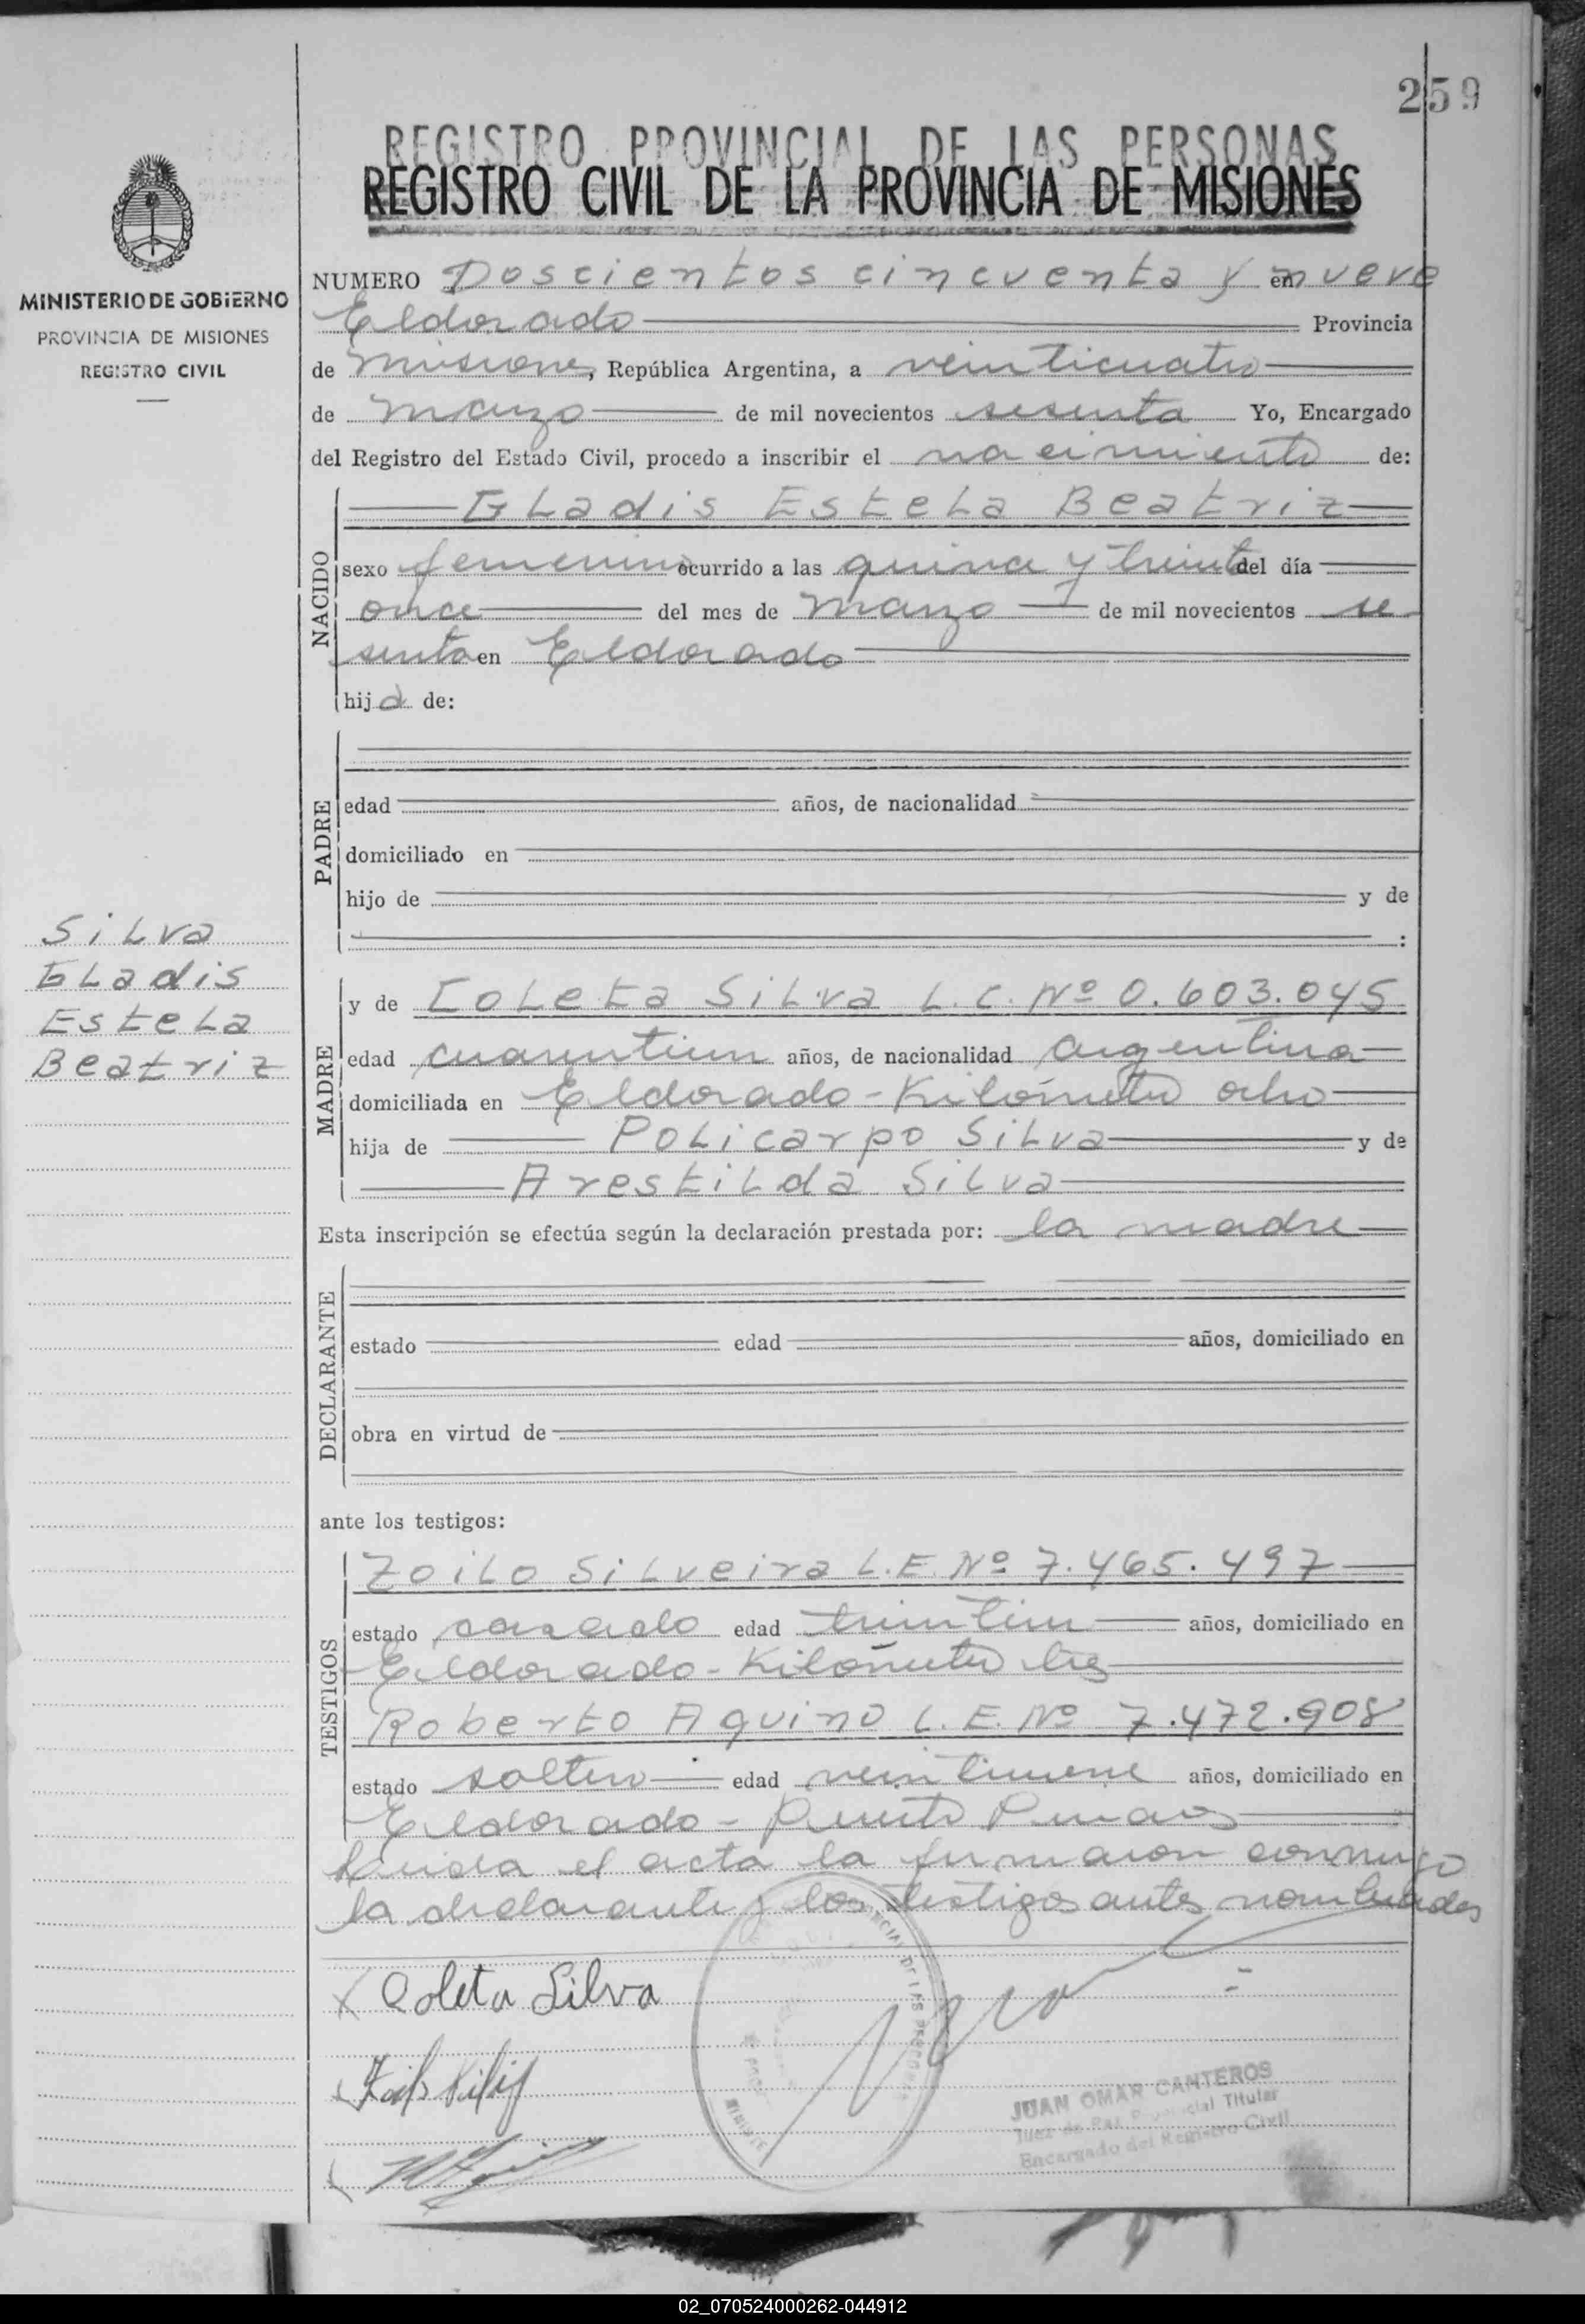 259
REGISTRO PROVINCIAL DE LAS PERSONAS
REGISTRO CIVIL DE LA PROVINCIA DE MISIONES
MINISTERIO DE GOBIERNO
PROVINCIA DE MISIONES
REGISTRO CIVIL
NUMERO Doscientos cincuenta y nueve en
Eldorado Provincia
de Misiones, República Argentina, a veinticuatro
de marzo de mil novecientos sesenta Yo, Encargado
del Registro del Estado Civil, procedo a inscribir el nacimiento de:
NACIDO
Gladis Estela Beatriz
sexo femenino ocurrido a las quince y treinta del día
once del mes de marzo de mil novecientos se
senta en Eldorado
hija de:
PADRE
edad años, de nacionalidad
domiciliado en
hijo de y de
:
Silva
Gladis
Estela
Beatriz
MADRE
y de Coleta Silva L.C. Nº 0.603.045
edad cuarentiun años, de nacionalidad argentina
domiciliada en Eldorado - Kilómetro ocho
hija de Policarpo Silva y de
Arestilda Silva
Esta inscripción se efectúa según la declaración prestada por: la madre
DECLARANTE
estado edad años, domiciliado en
obra en virtud de
ante los testigos:
TESTIGOS
Zoilo Silveira L.E. Nº 7.465.497
estado casado edad años, domiciliado en
Eldorado - Kilómetro
Roberto Aquino L.E. Nº 7.472.908
estado soltero edad veintinueve años, domiciliado en
Eldorado - Puerto
Leida el acta la firmaron conmigo
la declarante y los testigos antes nombrados
x Coleta Silva
JUAN OMAR CANTEROS
Juez de Paz Provincial Titular
Encargado del Registro Civil
02_070524000262-044912